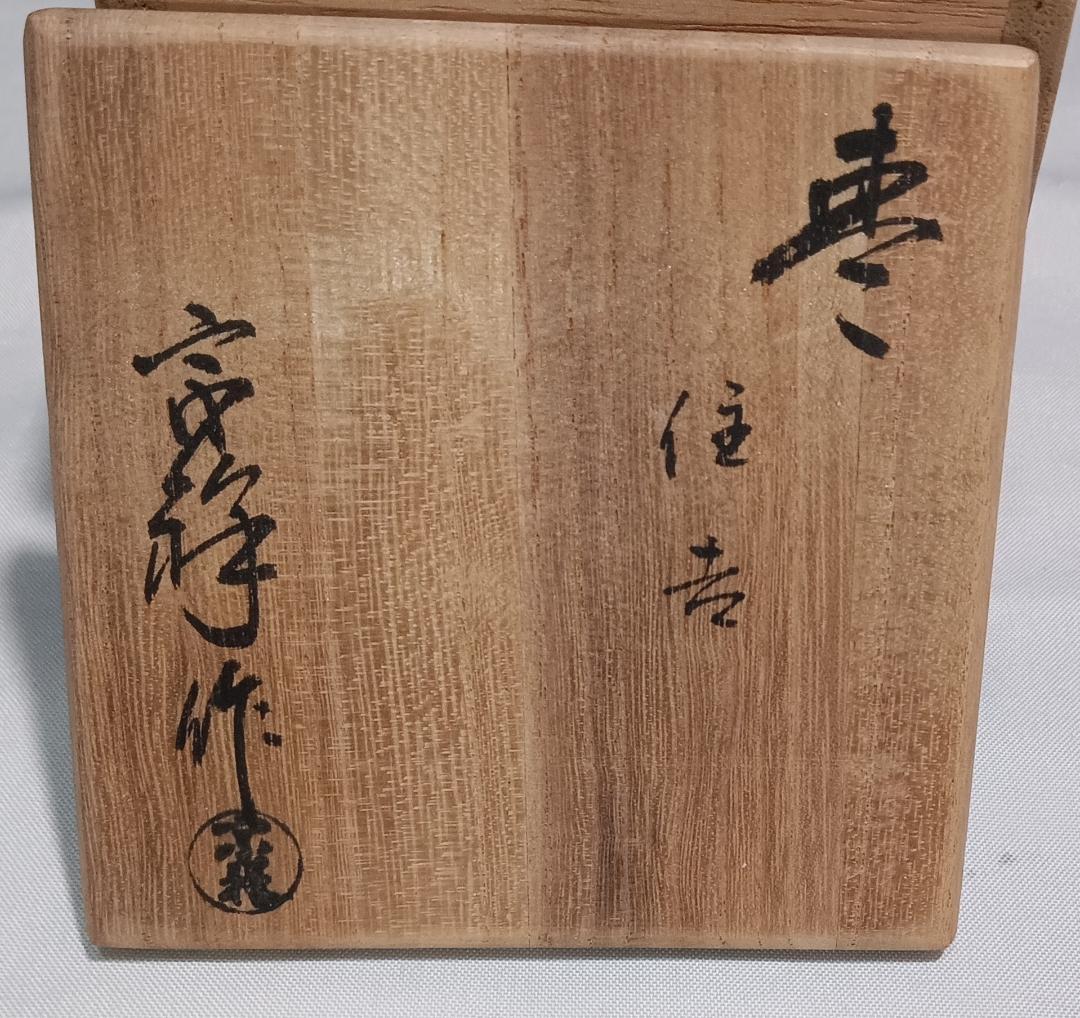 棗
住吉
宗祥作